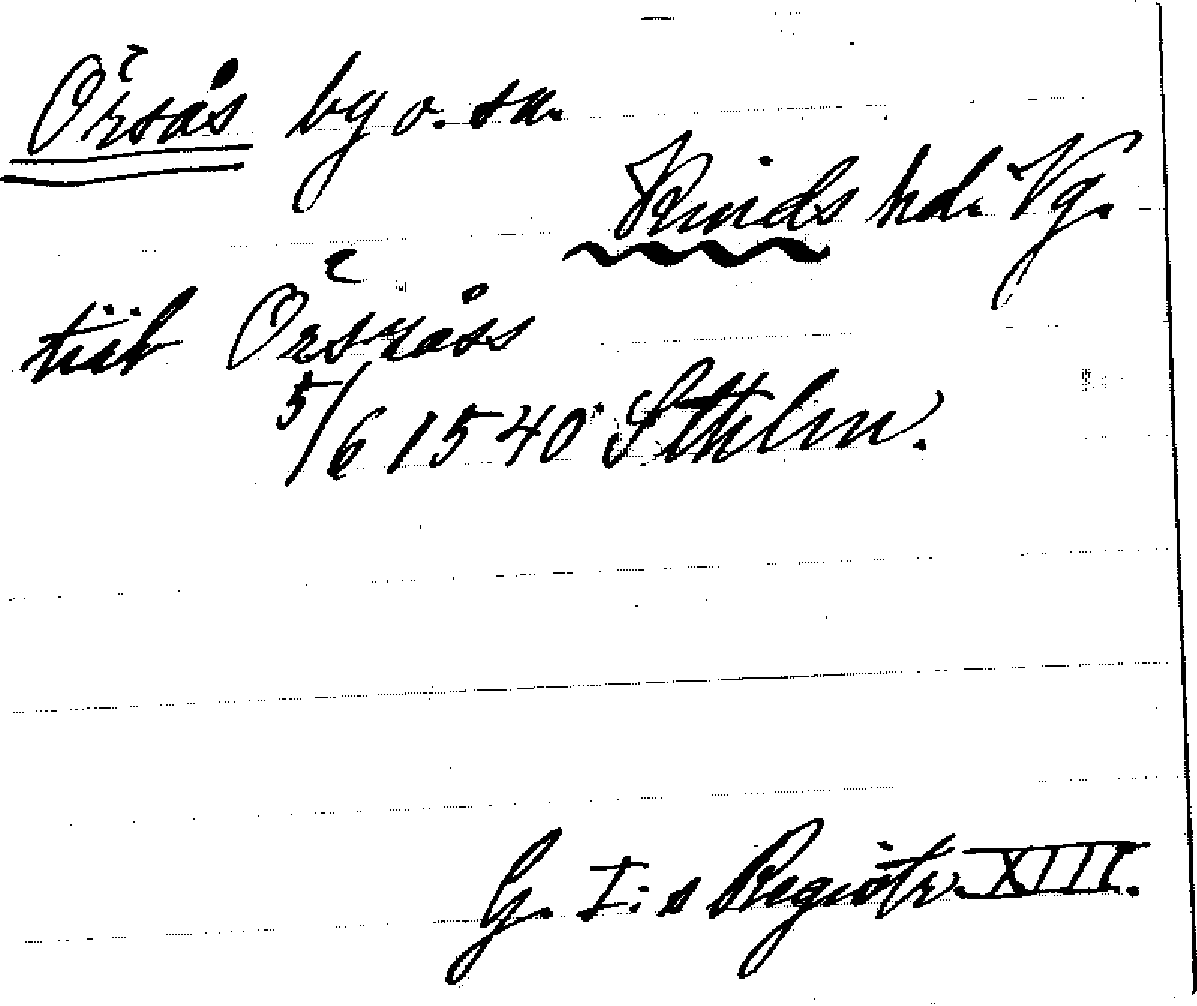 Örsås by o. sn.
Kinds hd. Vg.
tiil Örsråss
5/6 1540 Sthlm.
G. I:s Registr. XIII.